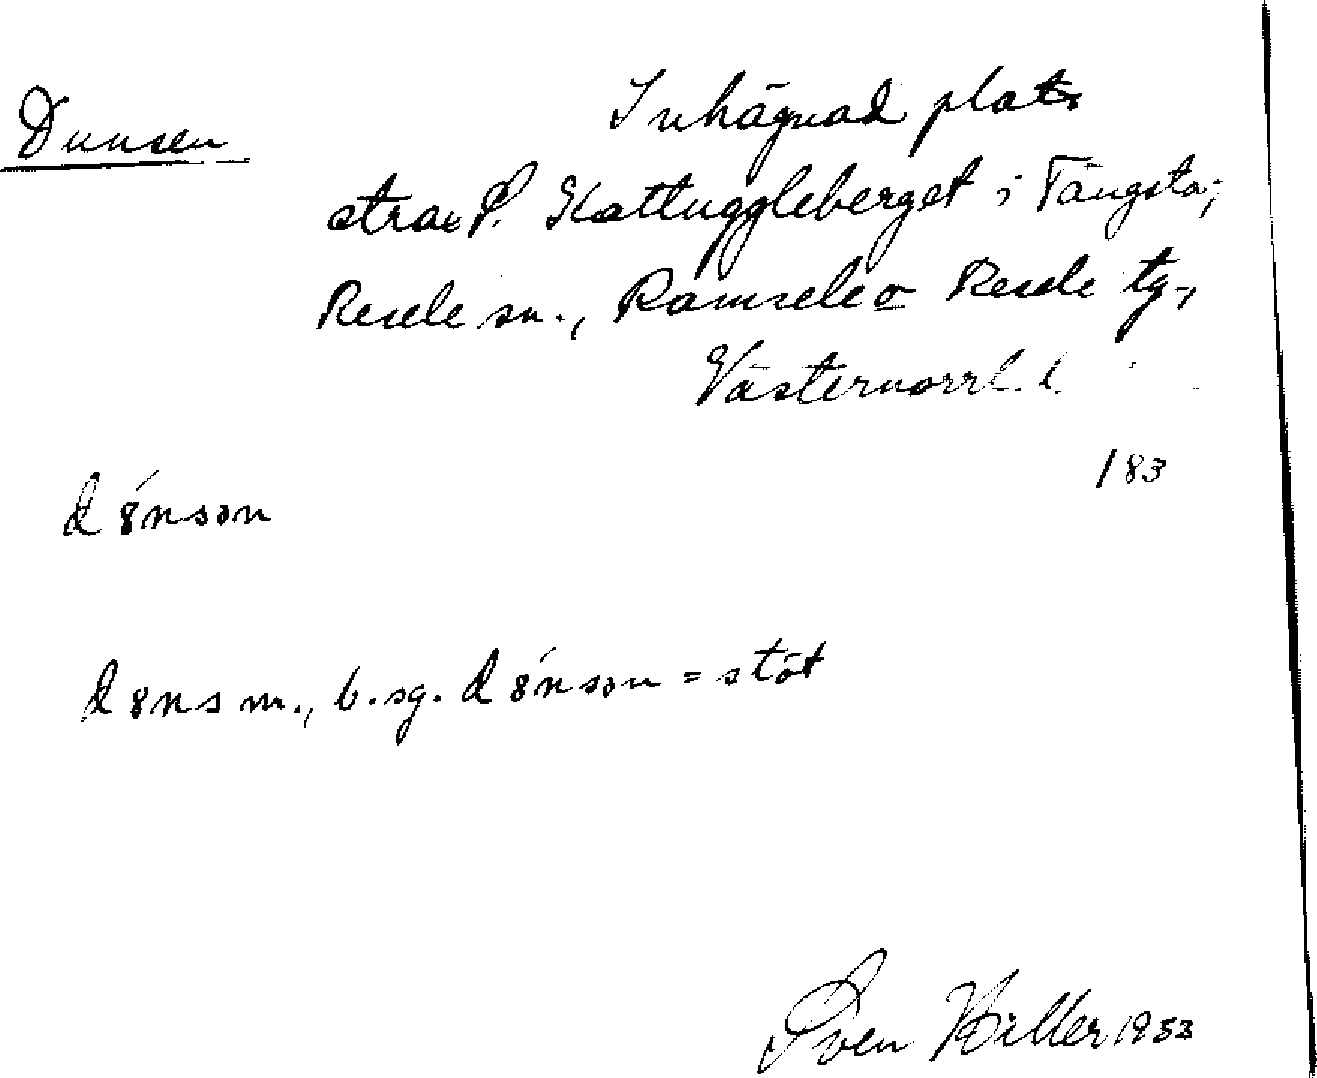 Dunsen
Inhägnad plats
strax S. Kattuggleberget i Tängsta,
Resele sn., Ramsele o Resele tg.,
Västernorrl. l.
183
dȣ́nsən
dȣns m., b.sg. dȣ́nsən = stöt
Sven Hiller 1953